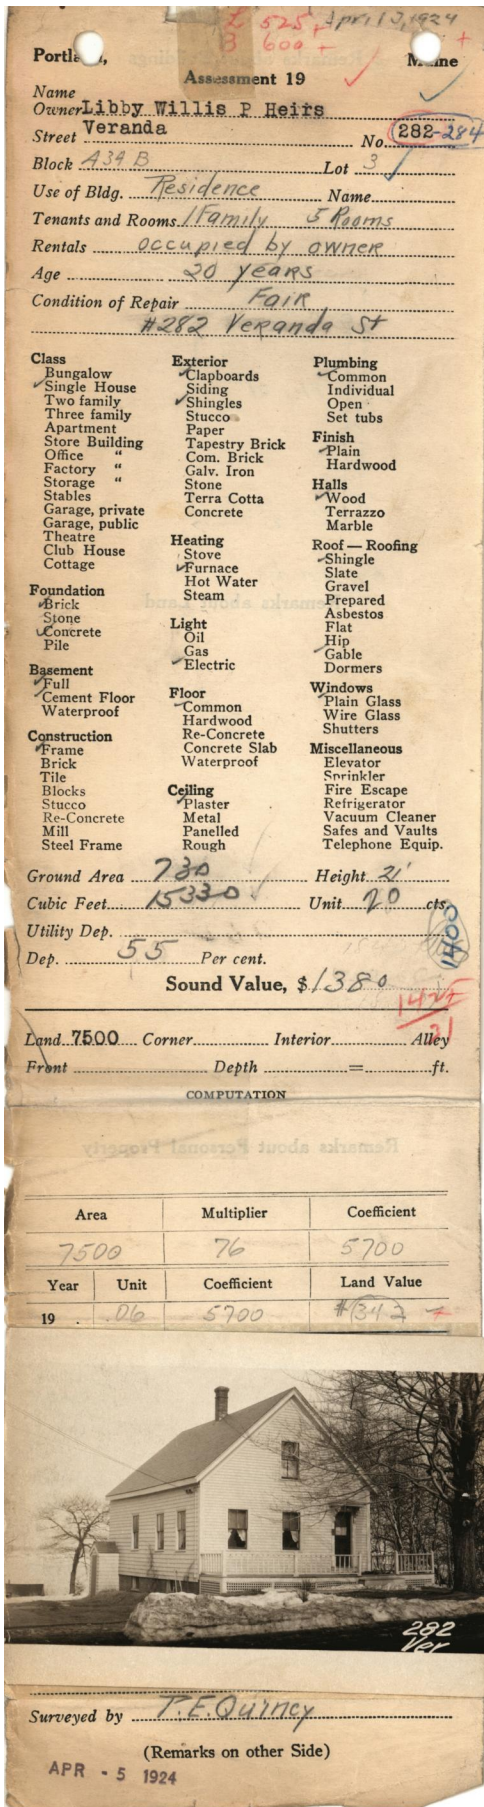 L 525 +
April 3, 1924
B 600 +
+
Portland, Maine
Assessment 19
Name
Owner Libby Willis P Heirs
Street Veranda No. 282-284
Block A34B Lot 3
Use of Bldg. Residence Name
Tenants and Rooms 1 Family 5 Rooms
Rentals occupied by owner
Age 20 years
Condition of Repair Fair
#282 Veranda St
Class
Bungalow
Single House
Two family
Three family
Apartment
Store Building
Office "
Factory "
Storage "
Stables
Garage, private
Garage, public
Theatre
Club House
Cottage
Foundation
Brick
Stone
Concrete
Pile
Basement
Full
Cement Floor
Waterproof
Construction
Frame
Brick
Tile
Blocks
Stucco
Re-Concrete
Mill
Steel Frame
Exterior
Clapboards
Siding
Shingles
Stucco
Paper
Tapestry Brick
Com. Brick
Galv. Iron
Stone
Terra Cotta
Concrete
Heating
Stove
Furnace
Hot Water
Steam
Light
Oil
Gas
Electric
Floor
Common
Hardwood
Re-Concrete
Concrete Slab
Waterproof
Ceiling
Plaster
Metal
Panelled
Rough
Plumbing
Common
Individual
Open
Set tubs
Finish
Plain
Hardwood
Halls
Wood
Terrazzo
Marble
Roof — Roofing
Shingle
Slate
Gravel
Prepared
Asbestos
Flat
Hip
Gable
Dormers
Windows
Plain Glass
Wire Glass
Shutters
Miscellaneous
Elevator
Sprinkler
Fire Escape
Refrigerator
Vacuum Cleaner
Safes and Vaults
Telephone Equip.
Ground Area 730 Height 21'
Cubic Feet 15330 Unit 20 cts.
Utility Dep.
1400
Dep. 55 Per cent.
Sound Value, $1380
1425
Land 7500 Corner Interior Alley
Front Depth = ft.
COMPUTATION
Remarks about Personal Property
Area Multiplier Coefficient
7500 76 5700
Year Unit Coefficient Land Value
19 .06 5700 #342 +
282
Ver
Surveyed by P.E. Quincy
(Remarks on other Side)
APR - 5 1924